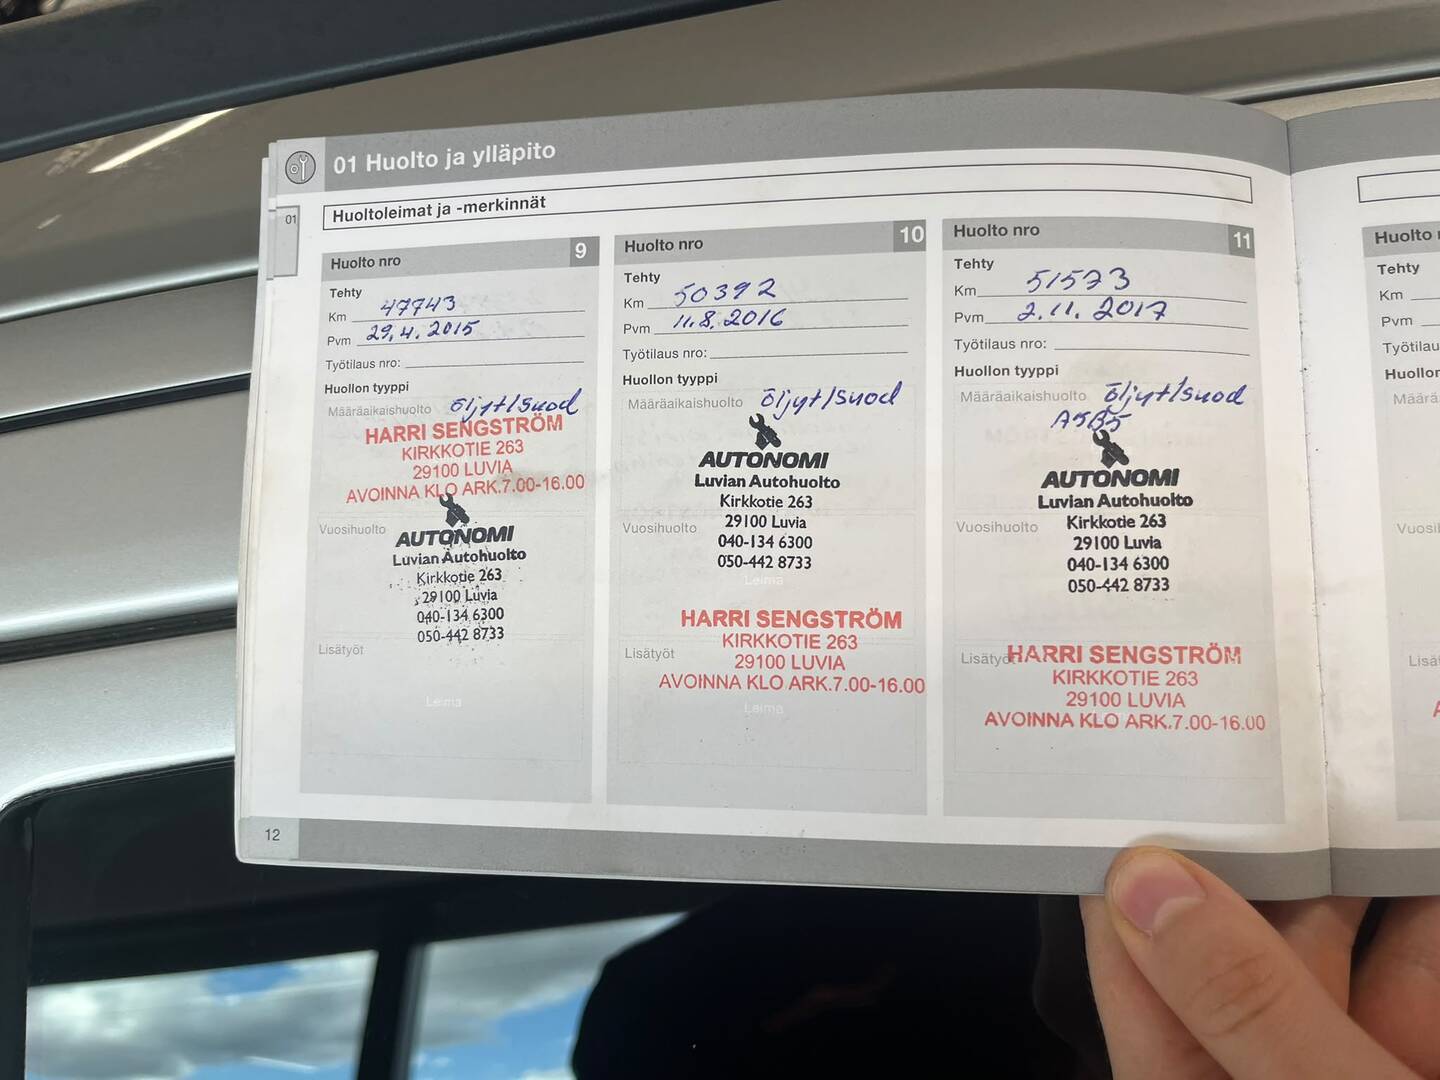 01 Huolto ja ylläpito
01
Huoltoleimat ja -merkinnät
Huolto nro 9
Tehty
Km 47743
Pvm 29.4.2015
Työtilaus nro:
Huollon tyyppi
Määräaikaishuolto öljyt/suod
HARRI SENGSTRÖM
KIRKKOTIE 263
29100 LUVIA
AVOINNA KLO ARK.7.00-16.00
Vuosihuolto
AUTONOMI
Luvian Autohuolto
Kirkkotie 263
29100 Luvia
040-134 6300
050-442 8733
Lisätyöt
Leima
Huolto nro 10
Tehty
Km 50392
Pvm 11.8.2016
Työtilaus nro:
Huollon tyyppi
Määräaikaishuolto öljyt/suod
AUTONOMI
Luvian Autohuolto
Kirkkotie 263
29100 Luvia
Vuosihuolto
040-134 6300
050-442 8733
Leima
HARRI SENGSTRÖM
KIRKKOTIE 263
Lisätyöt
29100 LUVIA
AVOINNA KLO ARK.7.00-16.00
Leima
Huolto nro 11
Tehty
Km 51573
Pvm 2.11.2017
Työtilaus nro:
Huollon tyyppi
Määräaikaishuolto öljyt/suod
A5B5
AUTONOMI
Luvian Autohuolto
Kirkkotie 263
Vuosihuolto
29100 Luvia
040-134 6300
050-442 8733
Lisätyöt
HARRI SENGSTRÖM
KIRKKOTIE 263
29100 LUVIA
AVOINNA KLO ARK.7.00-16.00
12
Huolto
Tehty
Km
Pvm